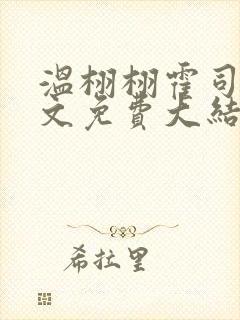 温栩栩霍司
文免费大结
希拉里